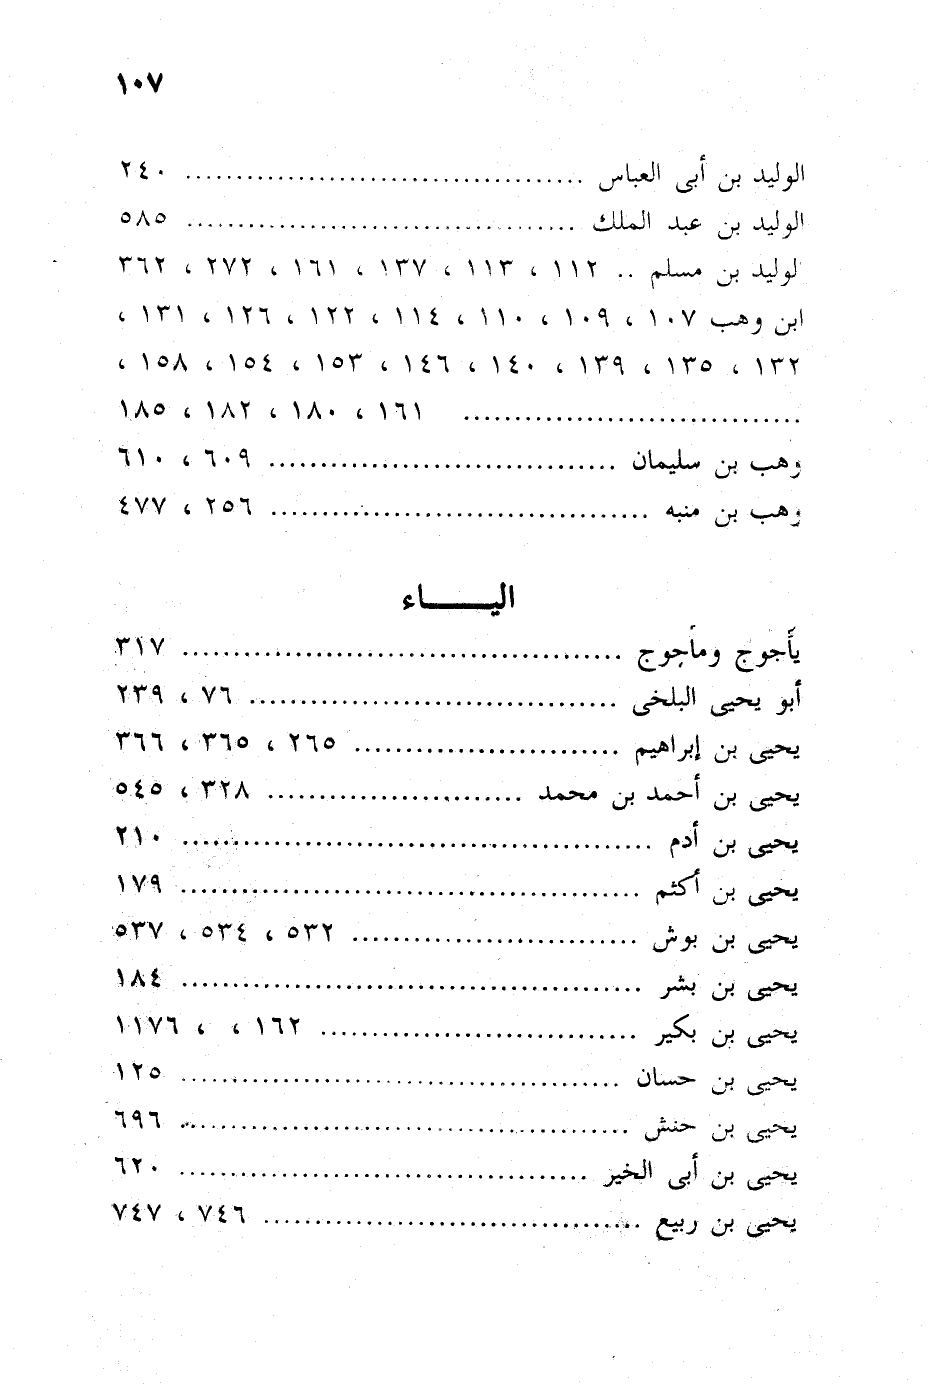 ١٠٧
الوليد بن أبى العباس ........................................ ٢٤٠
الوليد بن عبد الملك ........................................ ٥٨٥
لوليد بن مسلم .. ١١٢ ، ١١٣ ، ١٣٧ ، ١٦١ ، ٢٧٢ ، ٣٦٢
ابن وهب ١٠٧ ، ١٠٩ ، ١١٠ ، ١١٤ ، ١٢٢ ، ١٢٦ ، ١٣١ ،
١٣٢ ، ١٣٥ ، ١٣٩ ، ١٤٠ ، ١٤٦ ، ١٥٣ ، ١٥٤ ، ١٥٨ ،
.................................. ١٦١ ، ١٨٠ ، ١٨٢ ، ١٨٥
وهب بن سليمان .................................. ٦٠٩ ، ٦١٠
وهب بن منبه ...................................... ٢٥٦ ، ٤٧٧
اليـــــاء
يأجوج ومأجوج ............................................ ٣١٧
أبو يحيى البلخى .................................... ٧٦ ، ٢٣٩
يحيى بن إبراهيم .......................... ٢٦٥ ، ٣٦٥ ، ٣٦٦
يحيى بن أحمد بن محمد ......................... ٣٢٨ ، ٥٤٥
يحيى بن أدم .............................................. ٢١٠
يحيى بن أكثم ............................................. ١٧٩
يحيى بن بوش ............................ ٥٣٢ ، ٥٣٤ ، ٥٣٧
يحيى بن بشر ............................................. ١٨٤
يحيى بن بكير ............................... ١٦٢ ، ، ١١٧٦
يحيى بن حسان ........................................... ١٢٥
يحيى بن حنش ............................................ ٦٩٦
يحيى بن أبى الخير ........................................ ٦٢٠
يحيى بن ربيع ..................................... ٧٤٦ ، ٧٤٧